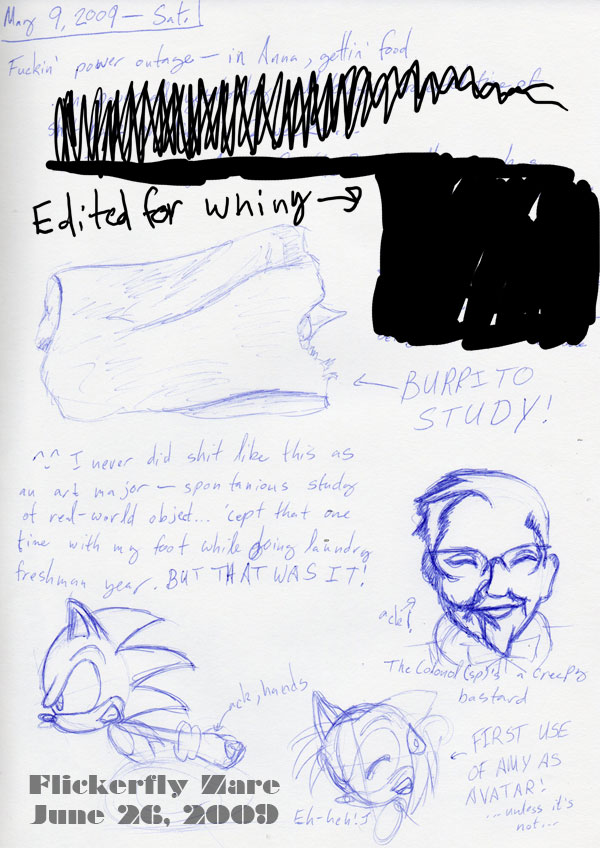 May 9, 2009 — Sat.
Fuckin' power outage — in Anna, gettin' food
Edited for whiny →
← BURRITO
STUDY!
^_^ I never did shit like this as
an art major — spontanious study
of real-world object... 'cept that one
time with my foot while doing laundry
freshman year. BUT THAT WAS IT!
ack!
The Colonol (sp)'s a creepy
bastard
ack, hands
← FIRST USE
OF AMY AS
AVATAR!
...unless it's
not...
Eh-heh!
Flickerfly Zare
June 26, 2009